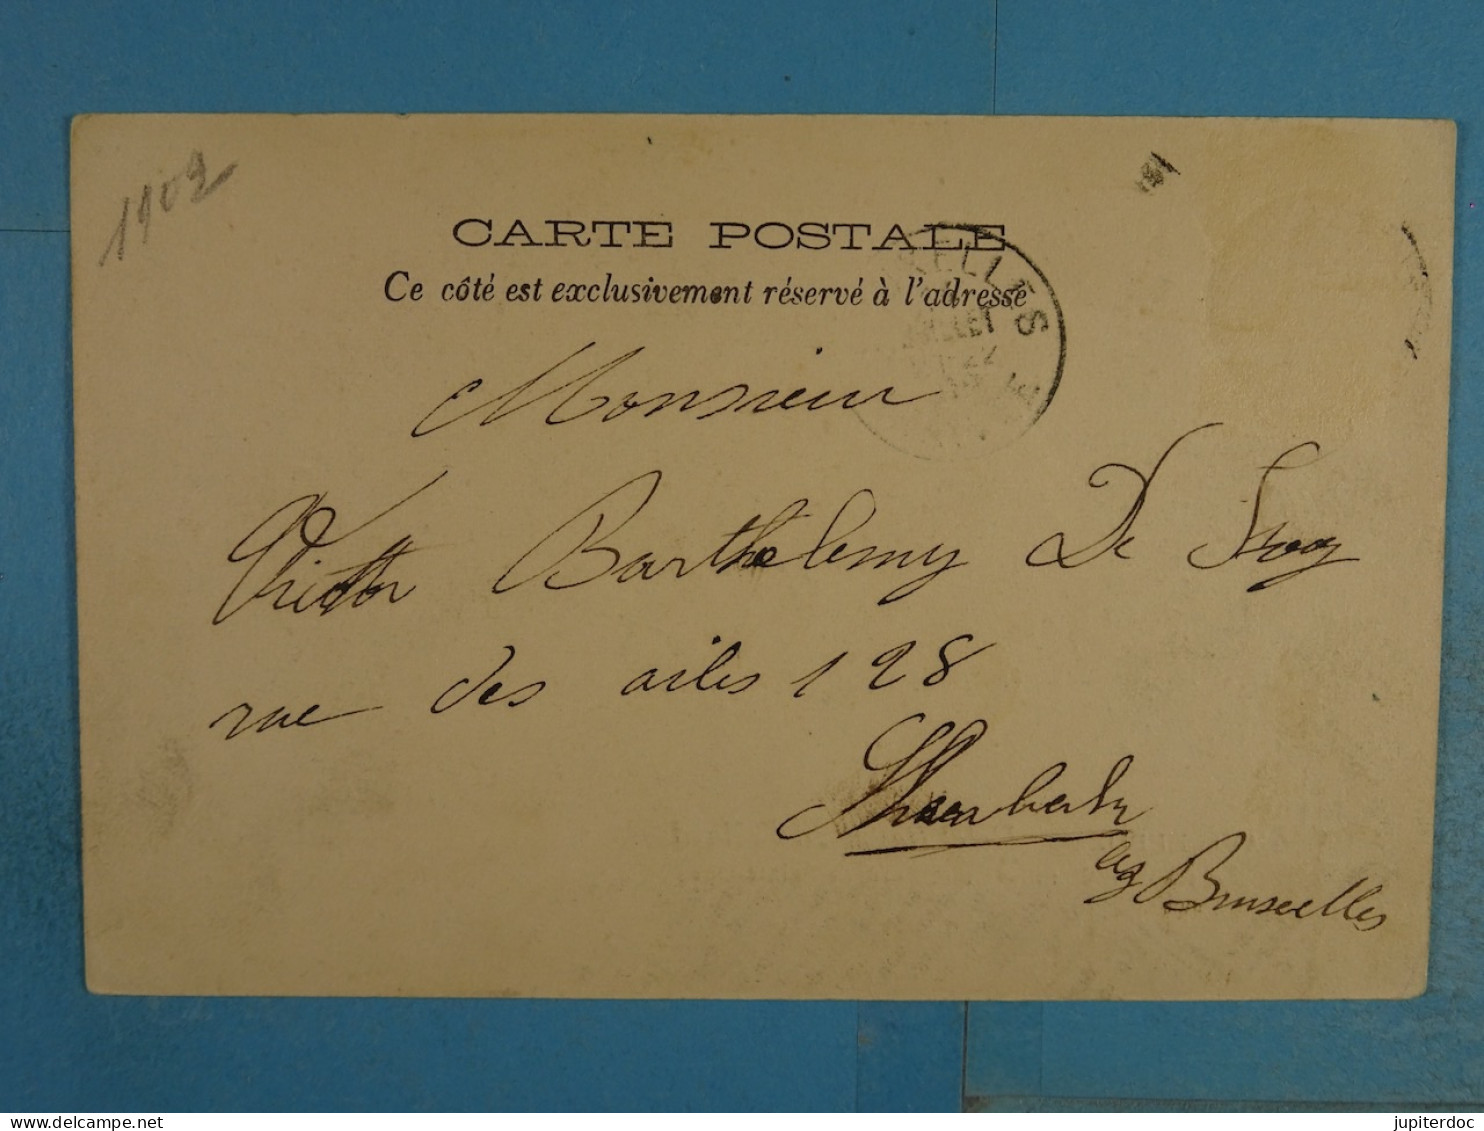 1902
CARTE POSTALE
Ce côté est exclusivement réservé à l'adresse
ELLES
JUILLET
Monsieur
Victor Barthelemy De
rue des ailes 128
Bruxelles
delcampe.net
jupiterdoc